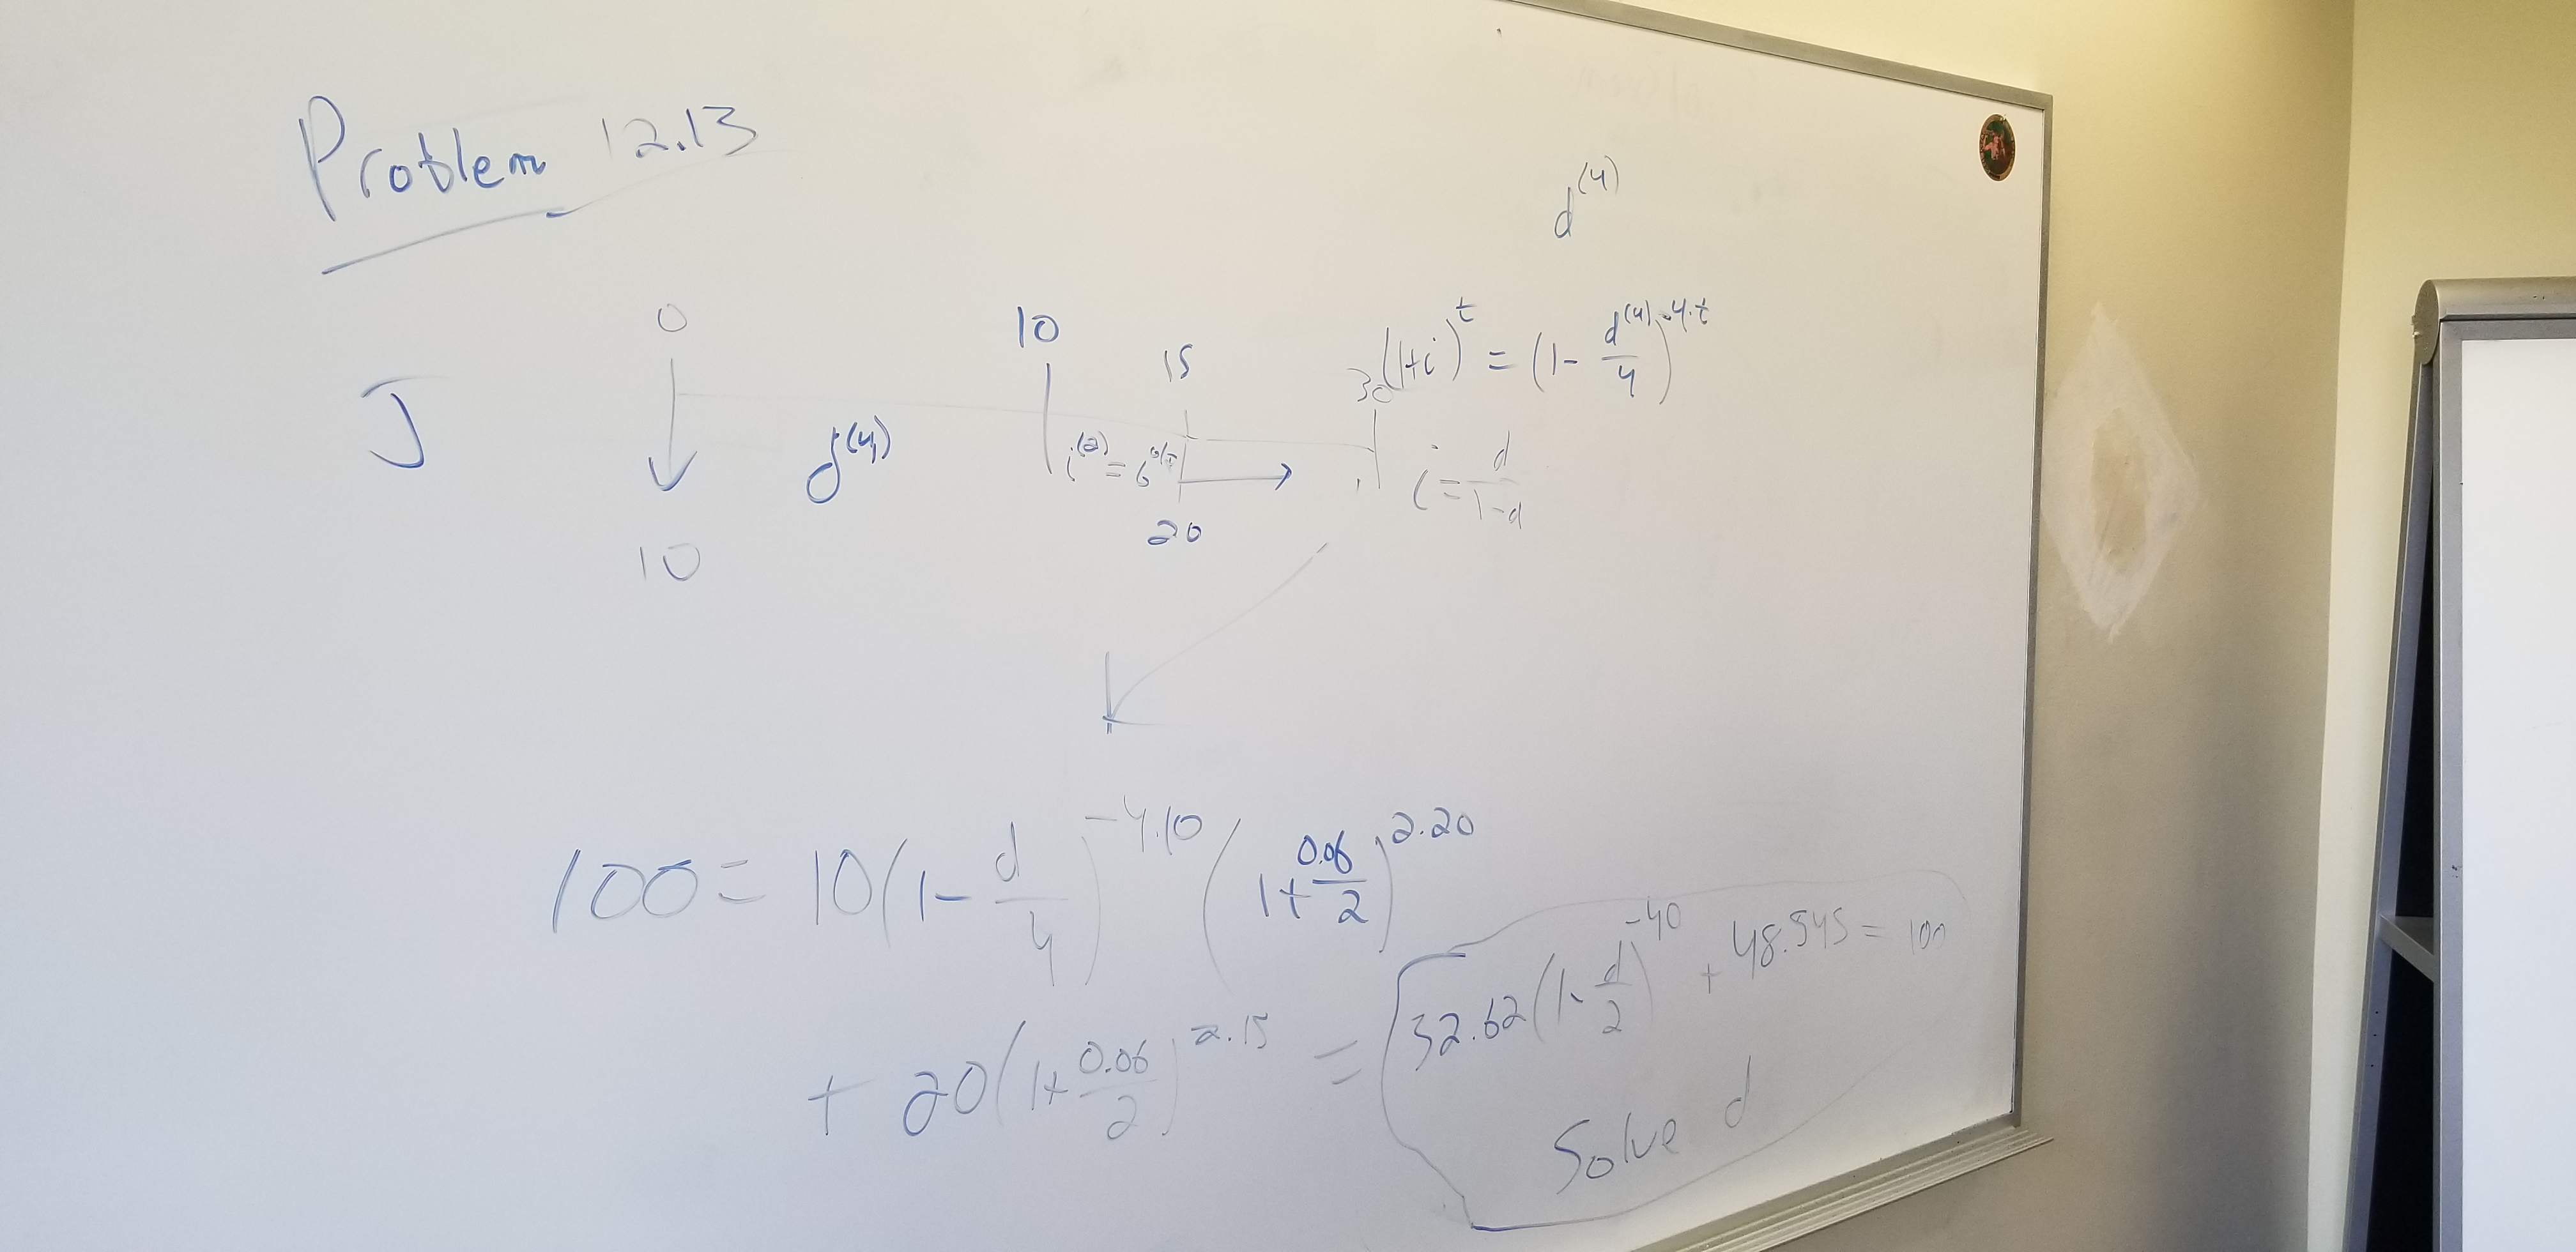 Problem 12.13
d^(4)
J
0 10 15 30
(1+i)^t = (1 - d^(4)/4)^-4·t
d^(4) i^(2) = 6% i = d/(1-d)
10 20
100 = 10(1 - d/4)^-4·10 (1 + 0.06/2)^2·20
+ 20(1 + 0.06/2)^2·15 = 32.62(1 - d/2)^-40 + 48.545 = 100
Solve d